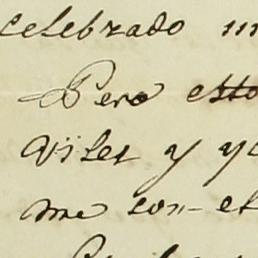 celebrado
Pero esto
Viles y y
me son- el